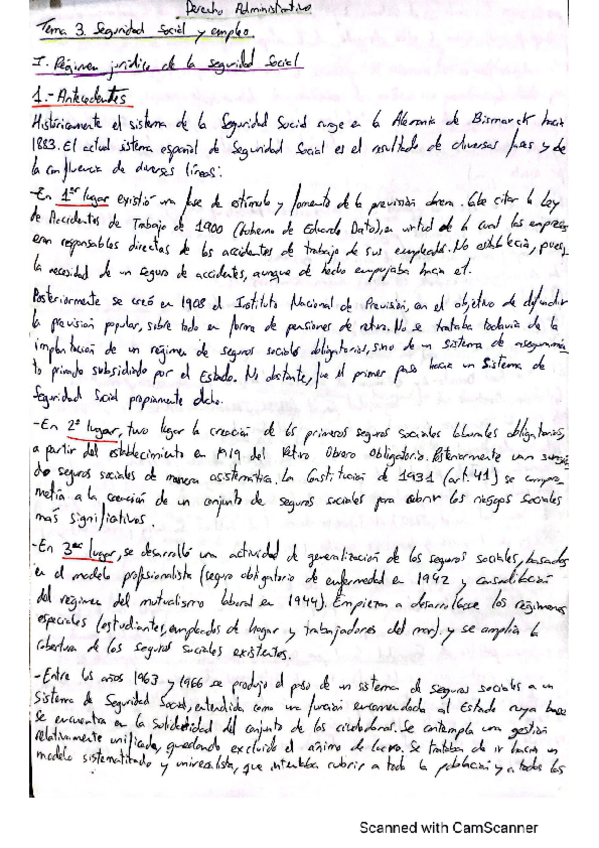 Derecho Administrativo
Tema 3. Seguridad Social y empleo.
I. Régimen jurídico de la seguridad Social
1.- Antecedentes
Históricamente el sistema de la Seguridad Social surge en la Alemania de Bismarck hacia
1883. El actual sistema español de Seguridad Social es el resultado de diversas fases y de
la confluencia de diversas líneas:
-En 1er lugar existió una fase de estímulo y fomento de la previsión obrera. Cabe citar la Ley
de Accidentes de Trabajo de 1900 (Gobierno de Eduardo Dato), en virtud de la cual las empresas
eran responsables directas de los accidentes de trabajo de sus empleados. No establecía, pues,
la necesidad de un seguro de accidentes, aunque de hecho empujaba hacia él.
Posteriormente se creó en 1908 el Instituto Nacional de Previsión, con el objetivo de difundir
la previsión popular, sobre todo en forma de pensiones de retiro. No se trataba todavía de la
implantación de un régimen de seguros sociales obligatorios, sino de un sistema de aseguramien
to privado subsidiado por el Estado. No obstante, fue el primer paso hacia un Sistema de
Seguridad Social propiamente dicho.
-En 2º lugar, tuvo lugar la creación de los primeros seguros sociales laborales obligatorios,
a partir del establecimiento en 1919 del Retiro Obrero Obligatorio. Posteriormente van surgien
do seguros sociales de manera asistemática. La Constitución de 1931 (art. 41) se compro-
metía a la creación de un conjunto de seguros sociales para cubrir los riesgos sociales
más significativos.
-En 3er lugar, se desarrolló una actividad de generalización de los seguros sociales, basados
en el modelo profesionalista (seguro obligatorio de enfermedad en 1942 y consolidación
del régimen del mutualismo laboral en 1944). Empiezan a desarrollarse los regímenes
especiales (estudiantes, empleados de hogar y trabajadores del mar), y se amplía la
cobertura de los seguros sociales existentes.
-Entre los años 1963 y 1966 se produjo el paso de un sistema de seguros sociales a un
Sistema de Seguridad Social, entendida como una función encomendada al Estado cuya base
se encuentra en la solidaridad del conjunto de los ciudadanos. Se contempla una gestión
relativamente unificada, quedando excluido el ánimo de lucro. Se trataba de ir hacia un
modelo sistematizado y universalista, que intentaba cubrir a toda la población y a todos los
Scanned with CamScanner